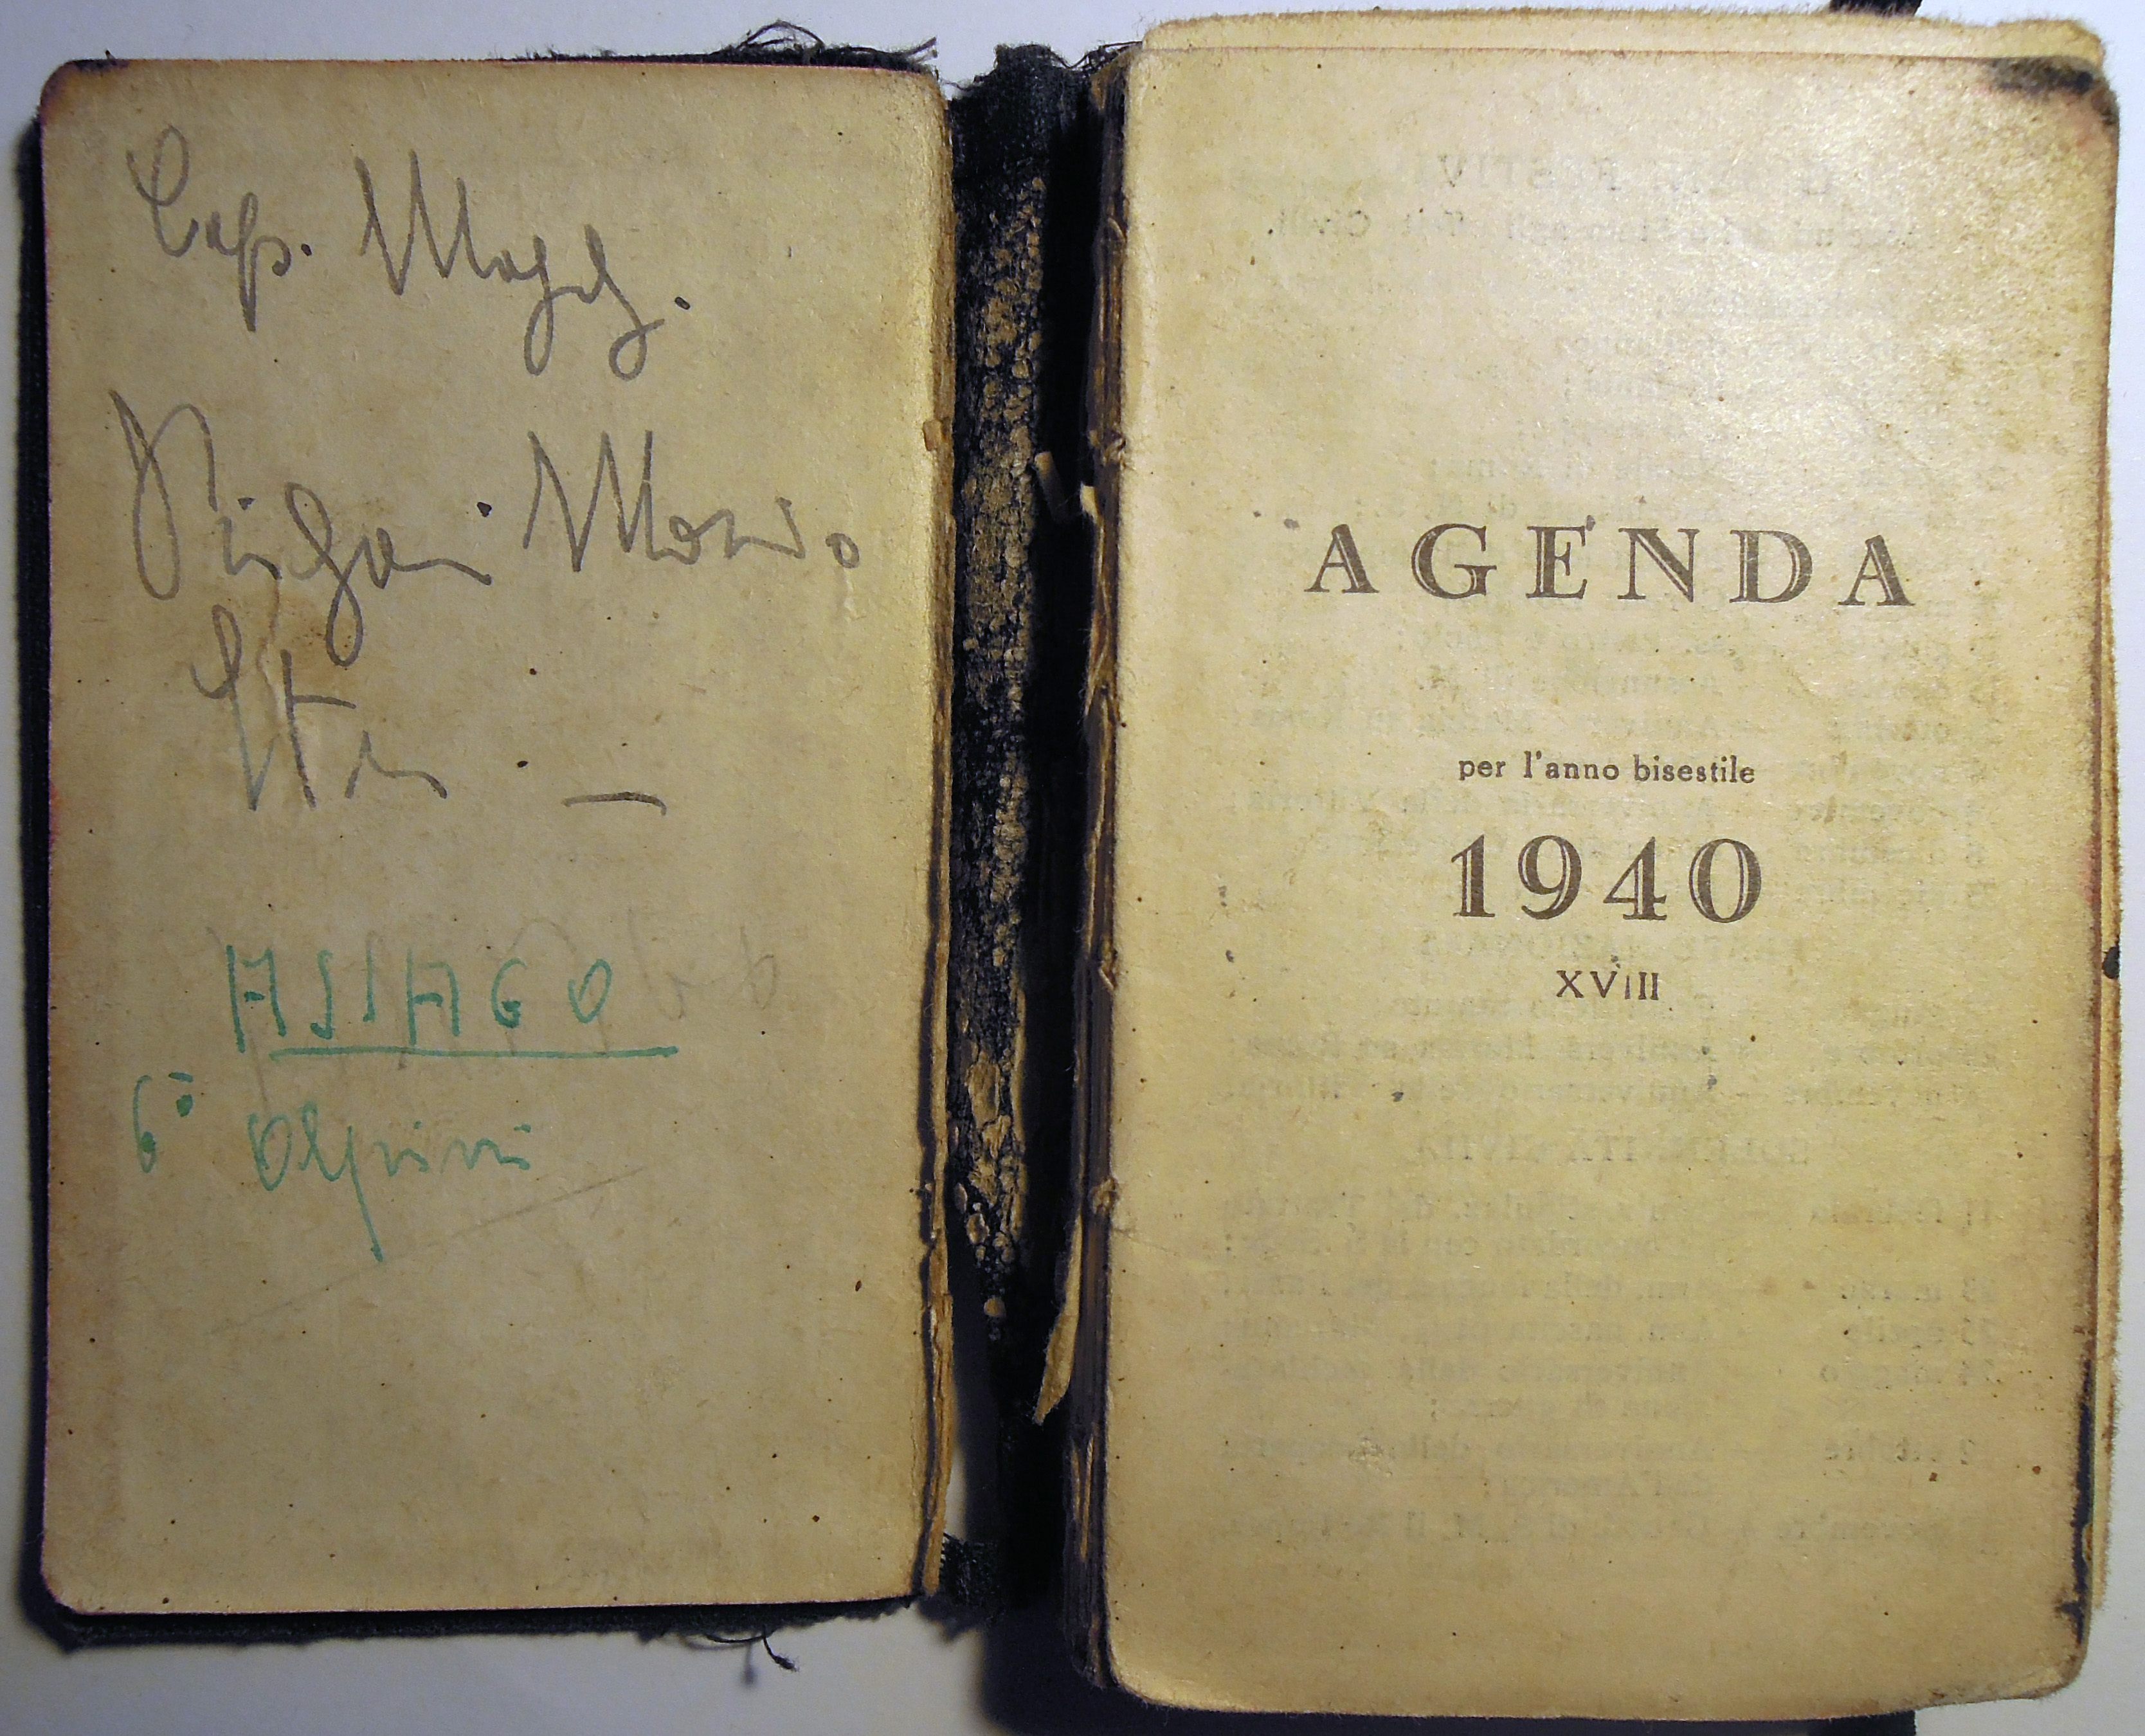 Cap. Magg.
Rigoni Mario
ASIAGO
6° Alpini
AGENDA
per l'anno bisestile
1940
XVIII